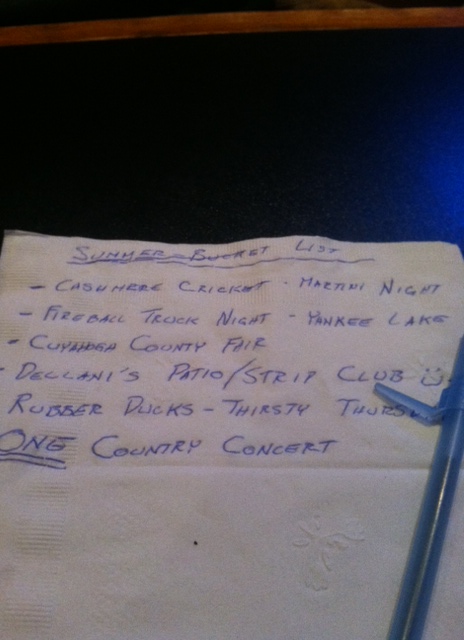 SUMMER BUCKET LIST
- CASHMERE CRICKET - MARTINI NIGHT
- FIREBALL TRUCK NIGHT - YANKEE LAKE
- CUYAHOGA COUNTY FAIR
- DELLANI'S PATIO/STRIP CLUB
RUBBER DUCKS - THIRSTY
ONE COUNTRY CONCERT